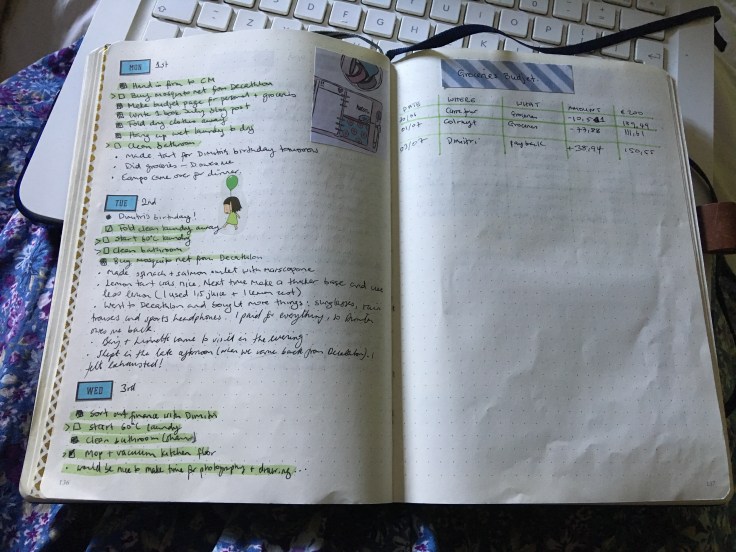 MON 1st
Hand in form to CM
Buy mosquito net from Decathlon
Make budget page for personal + groceries
Write 2 blog
Fold dry clothes away
Hang up wet laundry to dry
Clean bathroom
• Made tart for Dimitri's birthday tomorrow
• Did groceries –
• came over for dinner.
TUE 2nd
• Dimitri's birthday!
Fold clean laundry away
> Start 60°C laundry
> Clean bathroom
Buy mosquito net from Decathlon
• Made spinach + salmon omlet with marscapone
• Lemon tart was nice. Next time make a thicker base and use
less lemon (I used 1.5 juice + 1 lemon zest)
• Went to Decathlon and bought more things: sunglasses, rain
trousers and sports headphones. I paid for everything, so Dimitri
owes me back.
• came to visit in the evening.
• Slept in the late afternoon (when we came back from Decathlon). I
felt exhausted!
WED 3rd
Sort out finance with Dimitri
> Start 60°C laundry
Clean bathroom (shower)
Mop + vacuum kitchen floor
• Would be nice to make time for photography + drawing...
136
Groceries Budget
DATE WHERE WHAT AMOUNT
Carrefour Groceries
01/07 Colruyt Groceries -77,88
03/07 Dimitri payback +38,94 150,55
137